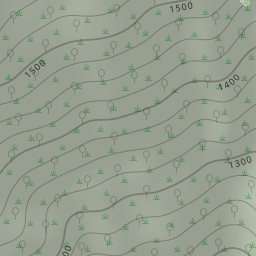 1500
1508
1400
1300
00